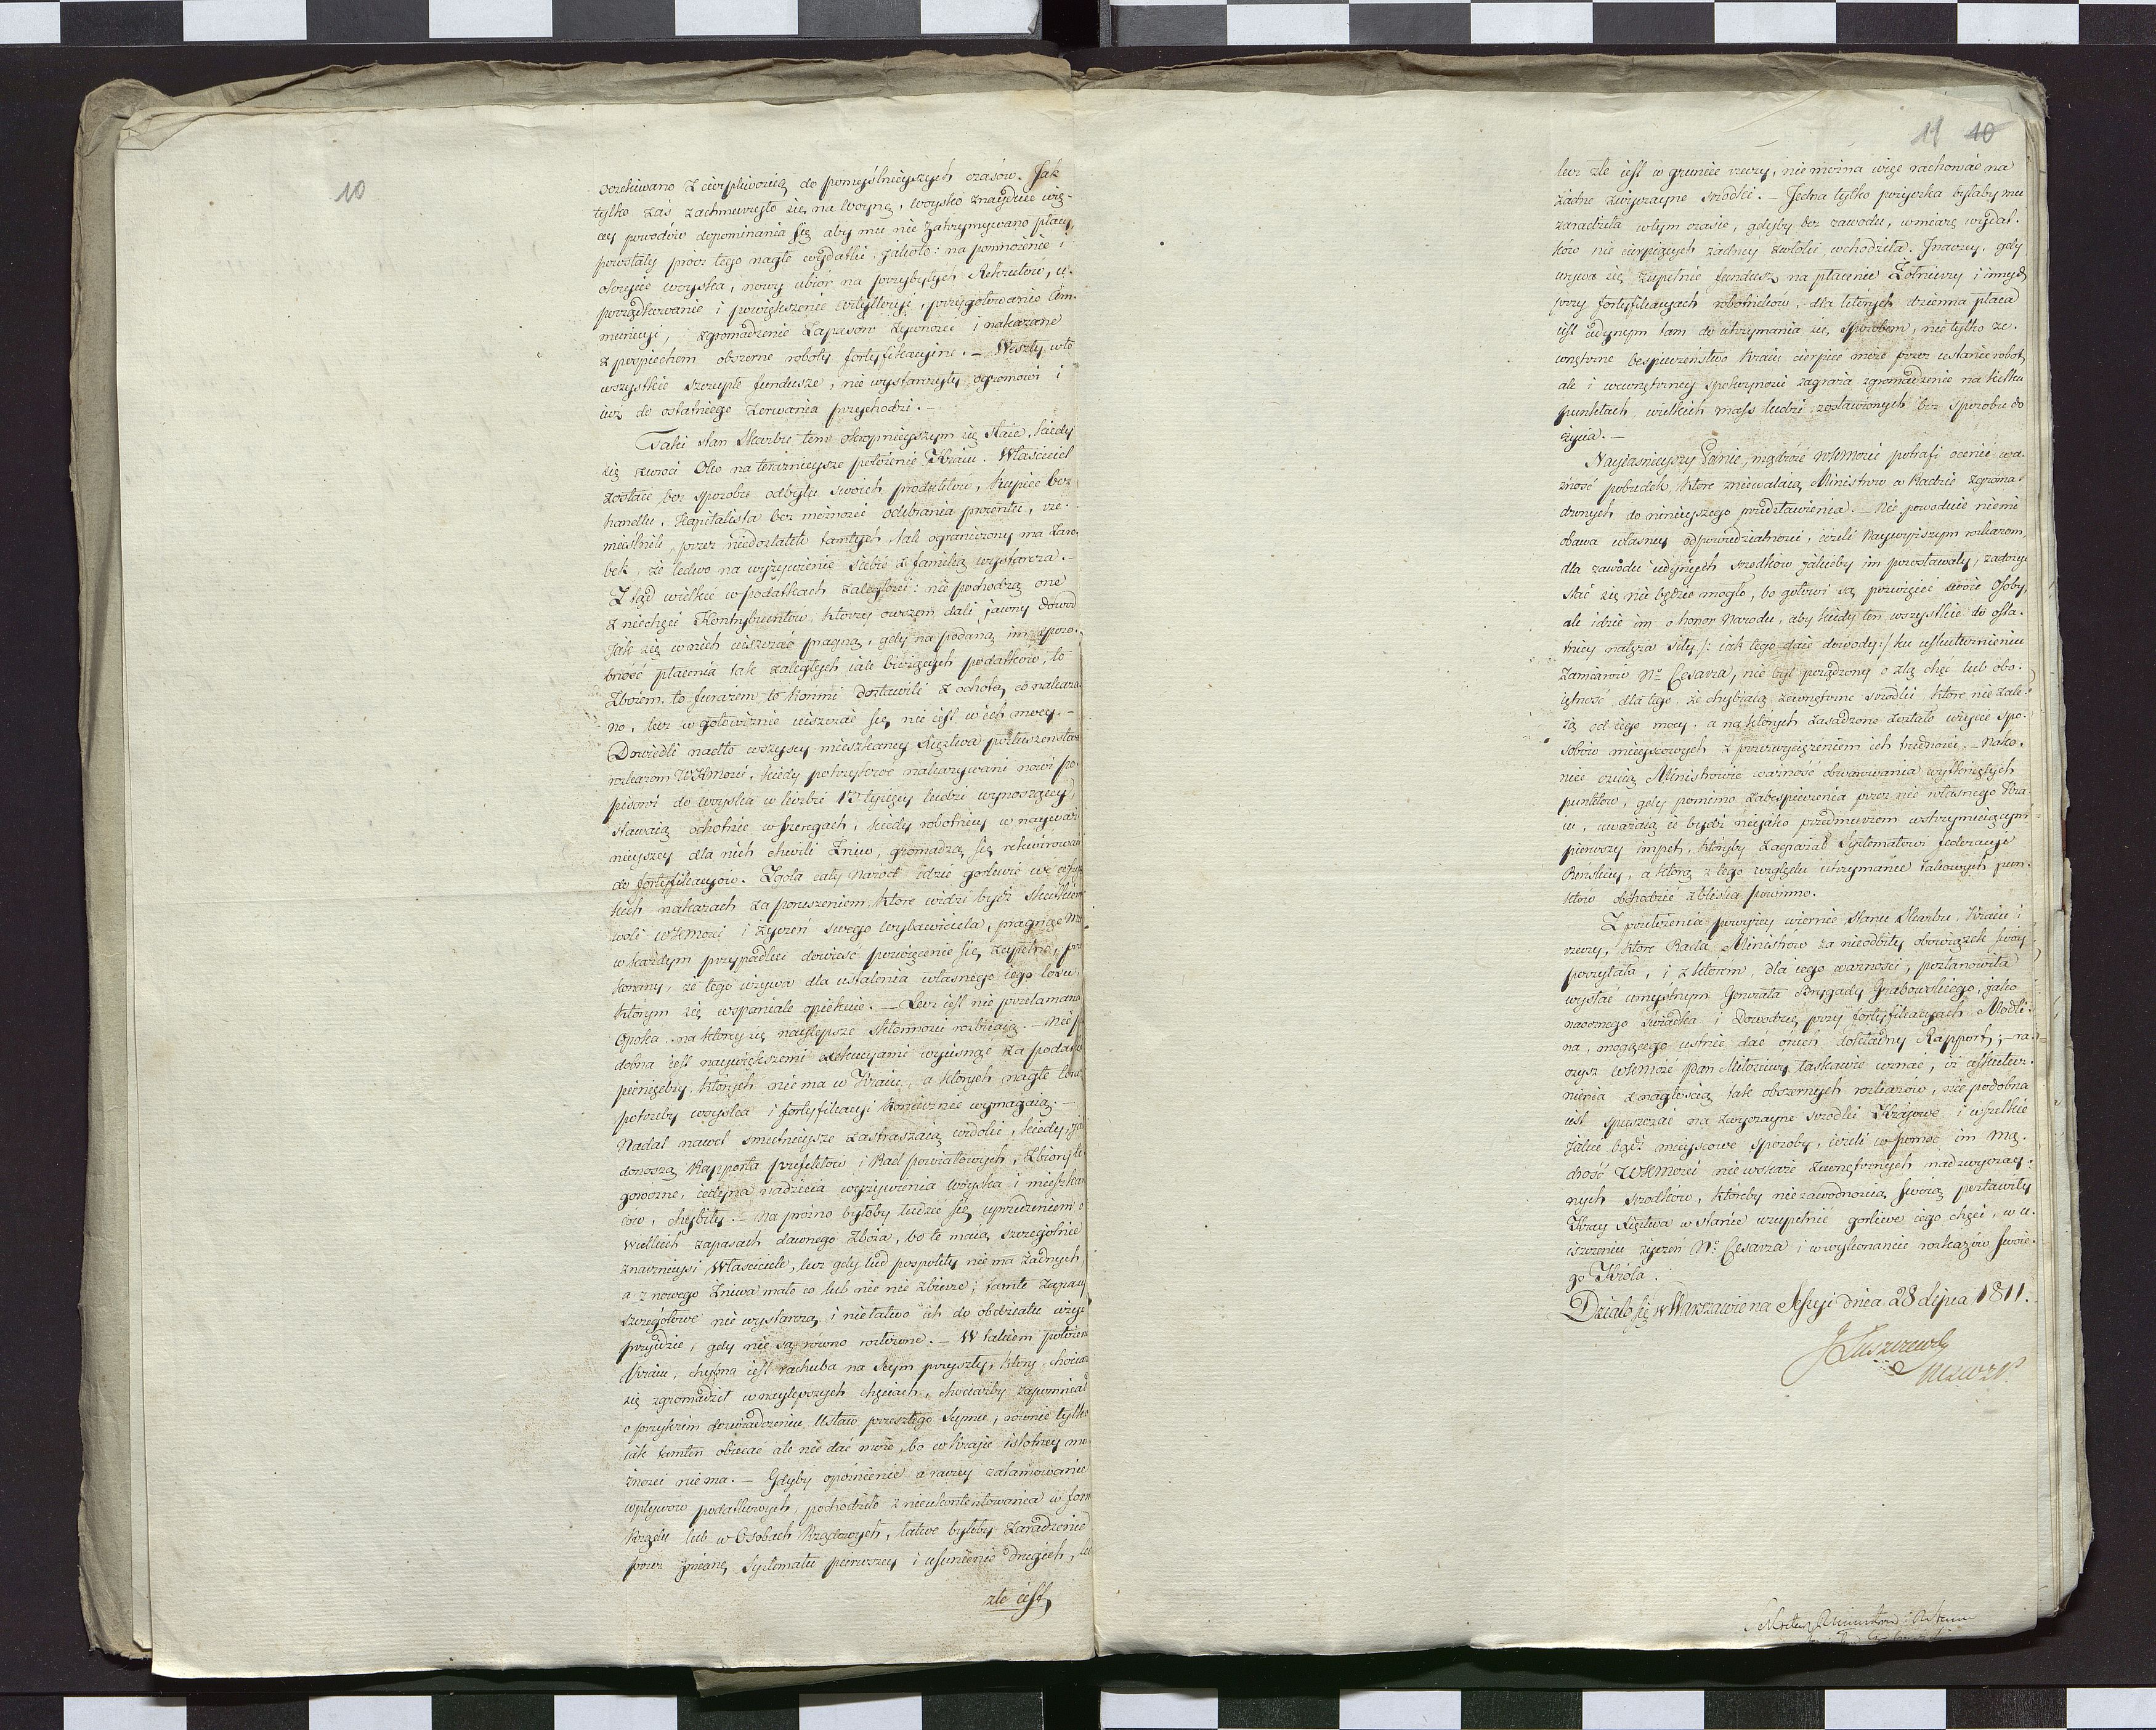 10
oczekiwano z cierpliwością do pomyślnieyszych czasów. Jak
tylko zaś zachmurzyło się na Woynę, woysko znayduie wię-
cey powodów dopominania się aby mu nie zatrzymywano płacy,
powstały prócz tego nagłe wydatki, jakoto: na pomnożenie i
okrycie woyska, nowy ubiór na przybyłych Rekrutów, u-
porządkowanie i powiększenie artylleryi, przygotowanie Am-
municyi, zgromadzenie Zapasów żywności i nakazane
z pospiechem obszerne roboty fortyfikacyine. — Weszły w to
wszystkie szczupłe fundusze, nie wystarczyły ogromowi i
iuż do ostatniego zerwania przychodzi. —
Taki stan Skarbu tem okropnieyszym się staie, kiedy
się zwróci Oko na teraznieysze położenie Kraiu. Właściciel
zostaie bez sposobu odbytu swoich produktów, kupiec bez
handlu, Kapitalista bez możności odebrania procentu, rze-
mieślnik, przez niedostatek tamtych, tak ograniczony ma Zaro-
bek, że ledwo na wyżywienie siebie z familią wystarcza. —
Ztąd wielkie w podatkach zaległości: nie pochodzą one
z niechęci Kontrybuentów, którzy owszem dali jawny dowód
jak się w nich uiszczać pragną, gdy na podaną im sposo-
bność płacenia tak zaległych iak bieżących podatków, to
Zbożem, to furażem, to końmi dostawili z ochotą co nakaza-
no, lecz w gotowiznie uiszczać się, nie iest w ich mocy. —
Dowiedli nadto wszyscy mieszkańcy Xięztwa posłuszeństwa
rozkazom WKMości, kiedy potrzykroć nakazywani nowi po-
pisowi do woyska w liczbie 13 tysięcy ludzi wynoszącey,
stawaią ochotnie w szeregach, kiedy robotnicy w nayważ-
nieyszey dla nich chwili Żniw, gromadzą się rekwirowani
do fortyfikacyów. Zgoła cały Naród idzie gorliwie we wszyst-
kich nakazach za poruszeniem, które widzi bydź skutkiem
woli WKMości i życzeń swego Wybawiciela, pragnąc Mu
w każdym przypadku dowieść poświęcenie się zupełne, prze-
konany, że tego wzywa dla ustalenia własnego iego losu,
którym się wspaniale opiekuie. — Lecz iest nie przełamana
Opoka, na którey się naylepsze skłonności rozbiiaią. — Nie po-
dobna iest naywiększemi exekucyami wycisnąć za podatki
pieniędzy, których nie ma w Kraiu, a których nagłe
potrzeby woyska i fortyfikacyi koniecznie wymagaią. —
Nadal nawet smutnieysze zastraszaią widoki, kiedy, jak
donoszą Rapporta prefektów i Rad powiatowych, Zbiory te-
goroczne, iedyna nadzieia wyżywienia woyska i mieszkań-
ców, chybiły. — Na próżno byłoby łudzić się uprzedzeniem o
Wielkich zapasach dawnego zboża, bo te maią szczególnie
znacznieysi Właściciele, lecz gdy lud pospolity nie ma żadnych,
a z nowego Żniwa mało co lub nic nie zbierze; tamte zapasy
szczegółowe nie wystarczą, i nie łatwo ich do obdziału użyć
przyidzie, gdy nie są równo rozłożone. — W takiem położeniu
Kraiu, chybna iest rachuba na Seym przyszły, który, chociaż
się zgromadził w naylepszych chęciach, chociażby zapomniał
o przykrem doświadczeniu Ustaw przeszłego Seymu, równie tylko
iak tamten obiecać ale nie dać może, bo w kraju istotney mo-
żności nie ma. — Gdyby opóźnienie a raczey zatamowanie
wpływów podatkowych, pochodziło z nieukontentowania w formie
Rządu lub w Osobach Rządowych, łatwo byłoby zaradzenie
przez zmianę Systematu pierwszey i usunienie drugich,
złe iest,
11 10
lecz złe iest w gruncie rzeczy, nie można więc rachować na
żadne zwyczayne środki. — Jedna tylko pożyczka byłaby mu
zaradziła w tym czasie, gdyby bez zawodu, w miarę wydat-
ków nie cierpiących żadney zwłoki, wchodziła. Inaczey, gdy
urywa się zupełnie fundusz na płacenie Żołnierzy i innych
przy fortyfikacyach robotników, dla których dzienna płaca
iest iedynym tam do utrzymania się sposobem, nie tylko ze-
wnętrzne bespieczeństwo Kraiu cierpieć może przez ustanie robot,
ale i wewnętrzney spokoyności zagraża zgromadzenie na kilku
punktach wielkich mass ludzi zostawionych bez sposobu do
życia. —
Nayiaśnieyszy Panie, mądrość WKMości potrafi ocenić wa-
żność pobudek, które zniewalaią Ministrów w Radzie zgroma-
dzonych do ninieyszego przedstawienia. — Nie powoduie niemi
obawa własney odpowiedzialności, ieżeli Naywyższym rozkazom,
dla zawodu iedynych środków jakieby im pozostawały, zadosyć
stać się nie będzie mogło, bo gotowi są poświęcić swoie Osoby,
ale idzie im o honor Narodu, aby kiedy ten wszystkie do osta-
tniey natęża siły /: iak tego daie dowody :/ ku uskutecznieniu
Zamiarów No Cesarza, nie był posądzony o złą chęć lub obo-
iętność dla tego, że chybiaią zewnętrzne środki które nie zale-
żą od iego mocy, a na których zasadzone zostało użycie spo-
sobów mieyscowych z przezwyciężeniem ich trudności. — Nako-
niec czuią Ministrowie ważność obwarowania wytkniętych
punktów, gdy pomimo zabespieczenia przez nie własnego Kra-
iu, uważaią ie bydź nieiako przedmurzem wstrzymuiącym
pierwszy impet, któryby zagrażał Systematowi federacyi
Renskiey, a którą z tego względu utrzymanie takowych pun-
któw obchodzić zbliska powinno.
Z przełożenia powyżey wiernie stanu Skarbu, Kraiu i
rzeczy, które Rada Ministrów za nieodbity obowiązek swóy
poczytała, i z którem, dla iego ważności, postanowiła
wysłać umyślnym Generała Brygady Grabowskiego, jako
naocznego świadka i Dowodzcę przy fortyfikacyach Modli-
na, mogącego ustnie dać oních dokładny Rapport; — ra-
czysz WKMość Pan Miłościwy łaskawie uznać, iż uskutecz-
nienia z nagłością tak obszernych rozkazów, nie podobna
iest spuszczać na zwyczayne środki Kraiowe i wszelkie
jakie bądź mieyscowe sposoby, ieżeli w pomoc im Mą-
drość WKMości nie wskaże zewnętrznych nadzwyczay-
nych środków, któreby niezawodnością swoią postawiły
Kray Xięztwa w stanie uzupełnić gorliwe iego chęci, w u-
iszczeniu życzeń No Cesarza i w wykonaniu rozkazów swoie-
go Króla.
Działo się w Warszawie na Sessyi dnia 28 Lipca 1811.
J Łuszczewski